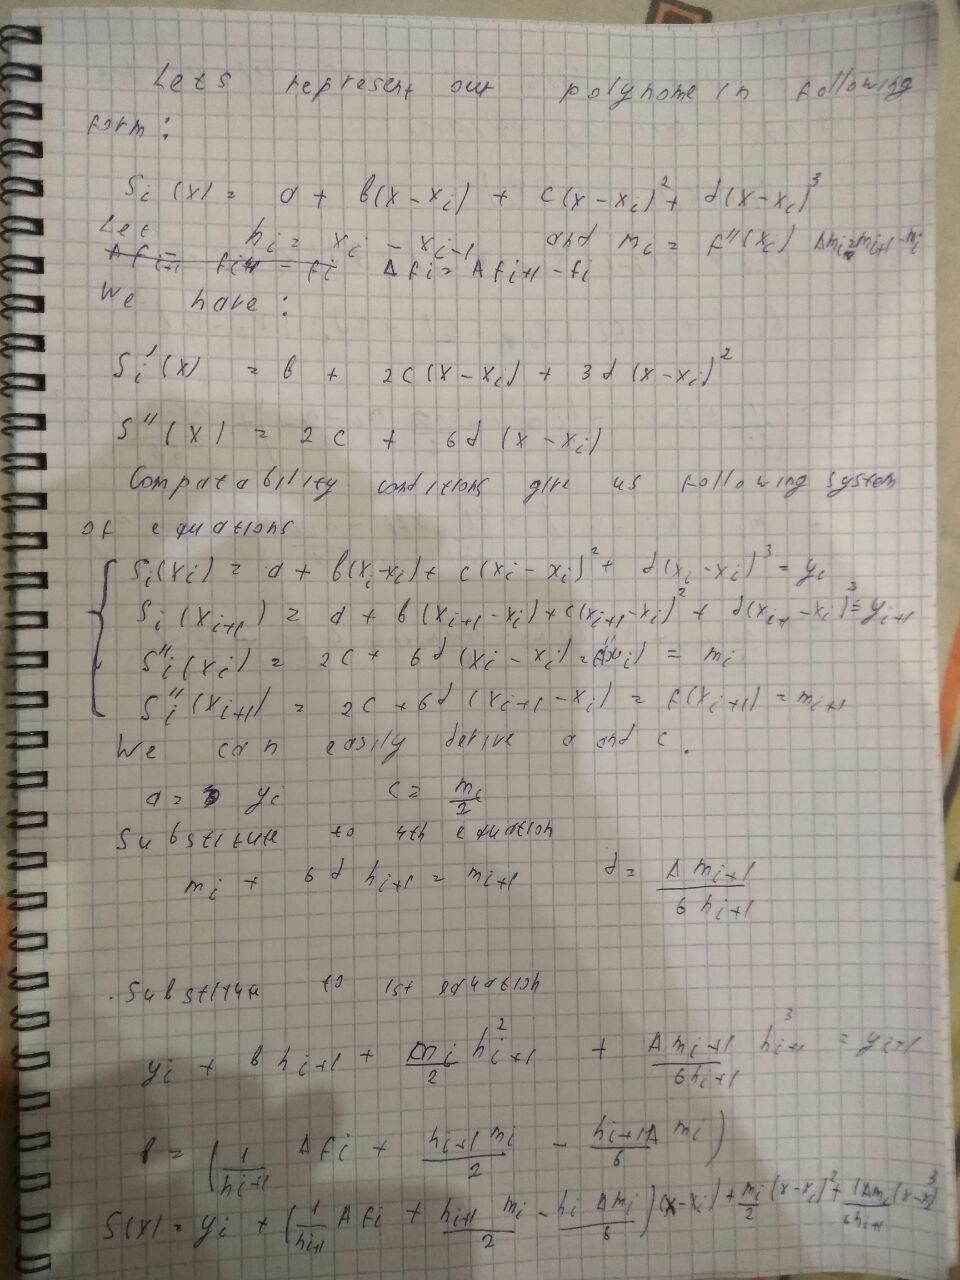 Lets represent our polynome in following
form:
Si(x) = a + b(x-xi) + c(x-xi)^2 + d(x-xi)^3
Let hi = xi - xi-1 and mi = f''(xi) Δmi = mi+1 - mi
Δfi = Δfi+1 - fi
We have:
Si'(x) = b + 2c(x-xi) + 3d(x-xi)^2
S''(x) = 2c + 6d(x-xi)
Compatability conditions give us following system
of equations
Si(xi) = a + b(xi-xi) + c(xi-xi)^2 + d(xi-xi)^3 = yi
Si(xi+1) = a + b(xi+1-xi) + c(xi+1-xi)^2 + d(xi+1-xi)^3 = yi+1
Si''(xi) = 2c + 6d(xi-xi) = f''(xi) = mi
Si''(xi+1) = 2c + 6d(xi+1-xi) = f(xi+1) = mi+1
We can easily derive a and c.
a = yi c = mi/2
Substitute to 4th equation
mi + 6d hi+1 = mi+1 d = Δmi+1/6hi+1
Substitute to 1st equation
yi + b hi+1 + mi/2 hi+1^2 + Δmi+1/6hi+1 hi+1^3 = yi+1
b = (1/hi+1 Δfi + hi+1 mi/2 - hi+1Δmi/6)
S(x) = yi + (1/hi+1 Δfi + hi+1 mi/2 - hi Δmi/6)(x-xi) + mi/2 (x-xi)^2 + (Δmi(x-x)^3/6hi+1